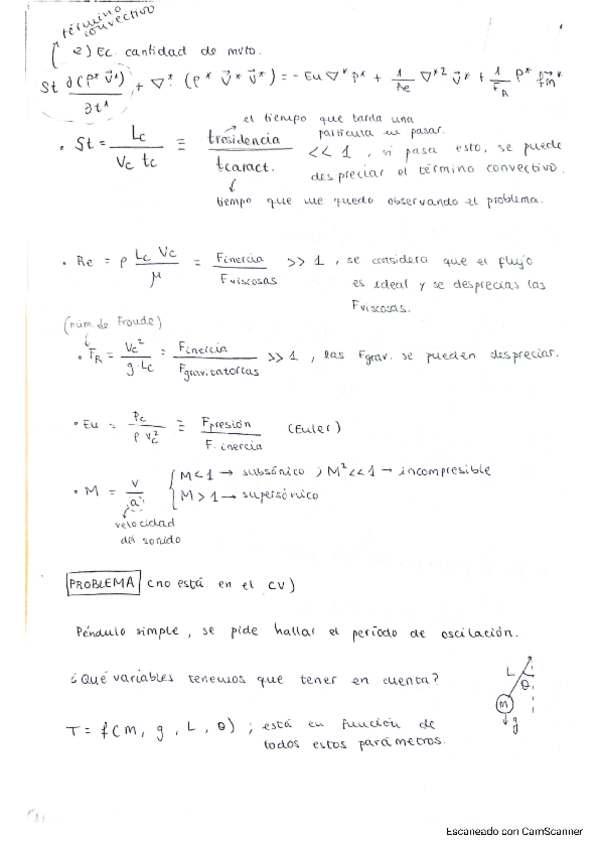 término
convectivo
2) Ec. cantidad de mvto.
St ∂(ρ* v⃗*)/∂t* + ∇* (ρ* v⃗* v⃗*) = - Eu ∇* p* + 1/Re ∇*² v⃗* + 1/FR ρ* f⃗m*
el tiempo que tarda una
partícula en pasar.
• St = Lc / Vc tc ≡ tresidencia / tcaract. << 1 , si pasa esto, se puede
despreciar el término convectivo.
tiempo que me quedo observando el problema.
• Re = ρ Lc Vc / μ = Finercia / Fviscosas >> 1 , se considera que el flujo
es ideal y se desprecias las
Fviscosas.
(núm. de Froude)
• FR = Vc² / g·Lc = Finercia / Fgravitatorias >> 1 , las Fgrav. se pueden despreciar.
• Eu = Pc / ρ Vc² ≡ Fpresión / F. inercia (Euler)
• M = v / a { M < 1 → subsónico ; M² << 1 → incompresible
M > 1 → supersónico
velocidad
del sonido
PROBLEMA (no está en el CV)
Péndulo simple, se pide hallar el período de oscilación.
¿Qué variables tenemos que tener en cuenta?
L
θ
m
g
T = f(m, g, L, θ) ; está en función de
todos estos parámetros.
Escaneado con CamScanner